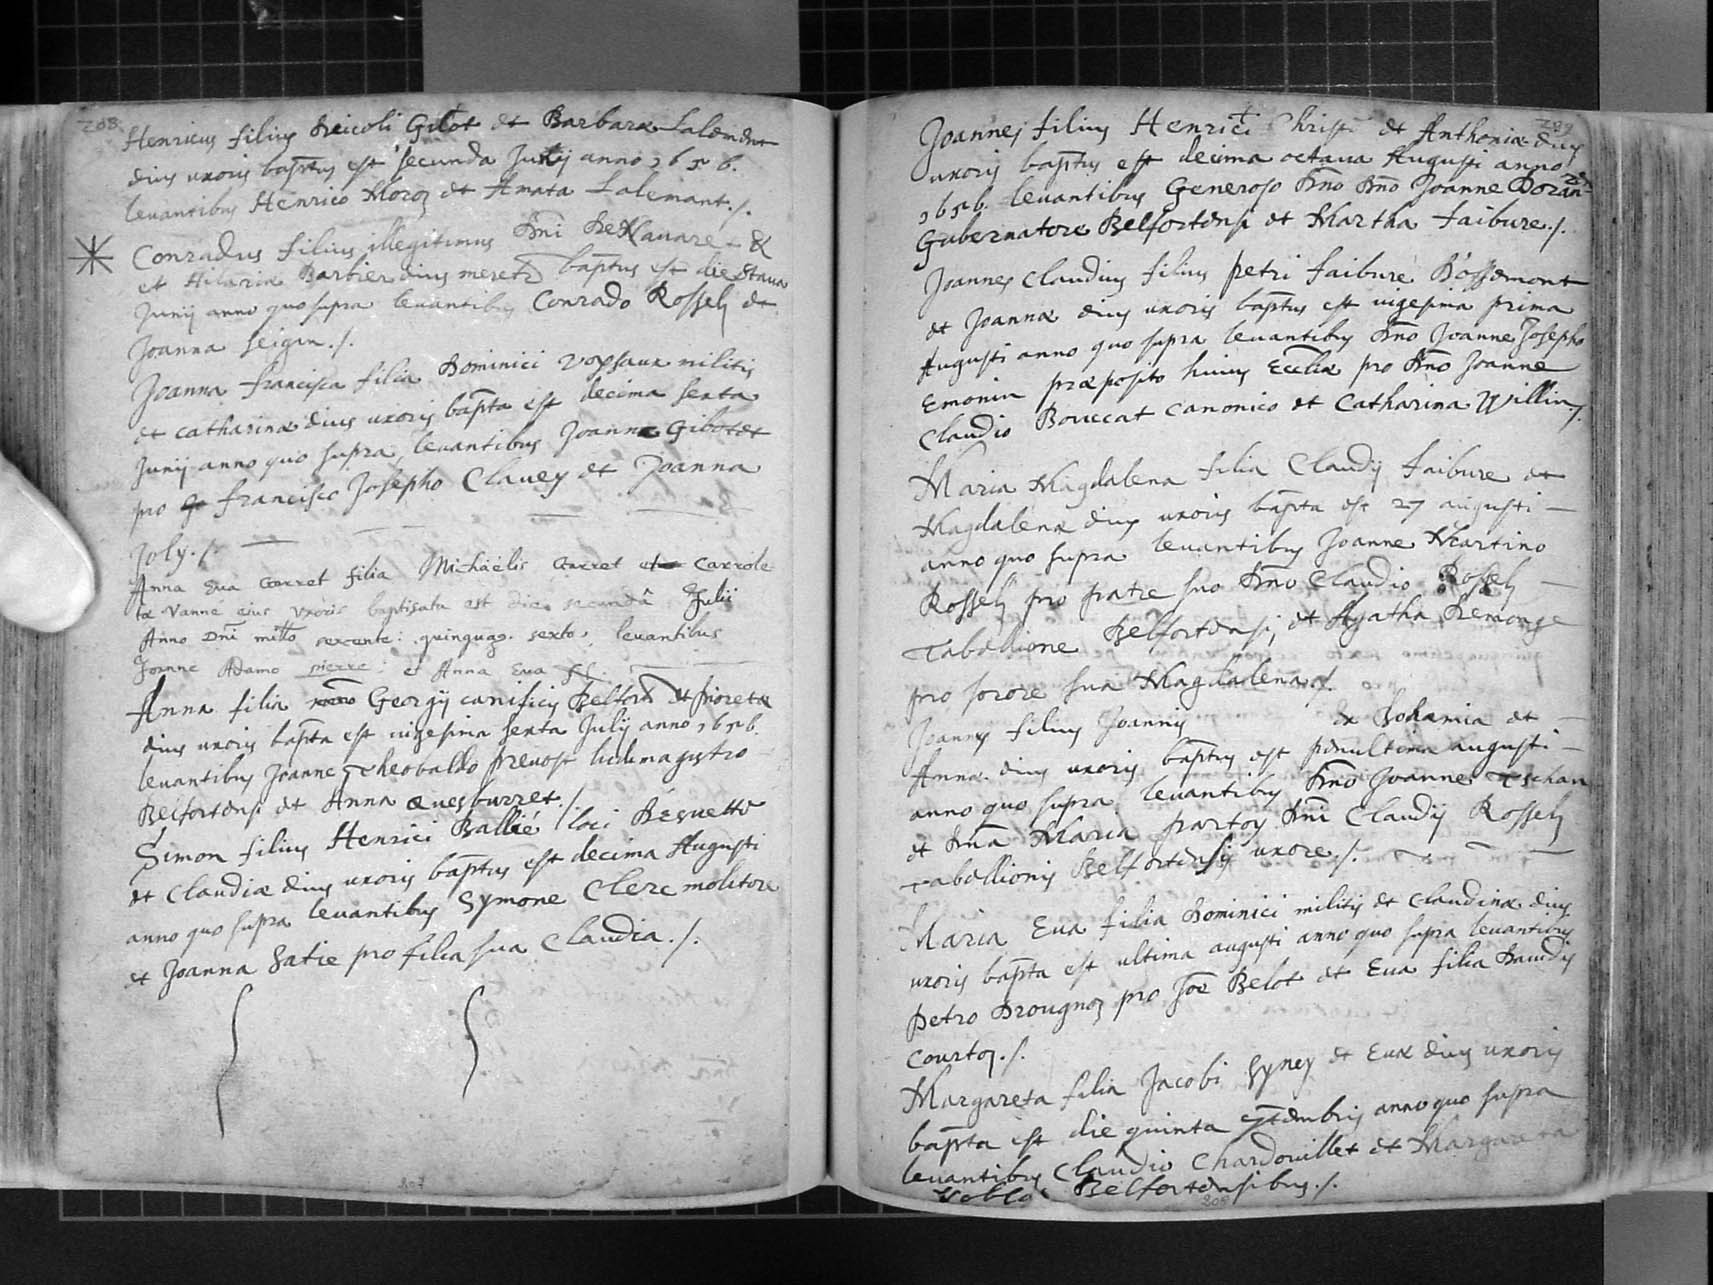 208
Henricus filius Nicoli Gilot et Barbara Lalemant
eius uxoris bap̄tus est secunda Junij anno 1656.
levantibus Henrico Moroz et Amata Lalemant./.
Conradus filius illegitimus Dn̄i De Navare &
et Hilaria Barbier eius meret bap̄tus est die 8tava
Junij anno quo supra levantibus Conrado Rossely et
Joanna Feigin./.
Joanna Francisca filia Dominici Voysaux militis
et Catharinæ eius uxoris bap̄ta est decima sexta
Junij anno quo supra, levantibus Joanne Gibotet
pro Francisco Josepho Clavey et Joanna
Joly./.
Anna Eva Garret filia Michaelis Garret Carrole
tæ Vanne eius uxoris baptisata est die secundâ Julii
Anno Dn̄i mill̄o sexcente: quinquag. sexto, levantibus
Joanne Adamo pierre: et Anna Eva
Anna filia Georgij carnificis Belfort et fioreta
eius uxoris bap̄ta est vigesima sexta Julij anno 1656.
levantibus Joanne Theobaldo prevost ludimagistro
Belfortensi et Anna quesburret./.
Simon filius Henrici Ballié loci
et Claudiæ eius uxoris bap̄tus est decima Augusti
anno quo supra levantibus Symone Clerc molitore
et Joanna Satie pro filia sua Claudia./.
207
209
Joannes filius Henrici Christi et Anthonia eius
uxoris bap̄tus est decima octava Augusti anno
1656. levantibus Generoso Dn̄o Dn̄o Joanne Dozan
Gubernatore Belfortensi et Martha Faibure./.
Joannes Claudius filius petri faibure Bossemont
et Joannæ eius uxoris bap̄tus est vigesima prima
Augusti anno quo supra levantibus Dn̄o Joanne Josepho
Emonin præposito huius Eccl̄iæ pro Dn̄o Joanne
Claudio Bouccat canonico et Catharina Willin./.
Maria Magdalena filia Claudij faibure et
Magdalenæ eius uxoris bap̄ta est 27 augusti
anno quo supra levantibus Joanne Martino
Rossely pro fratre suo Dn̄o Claudio Rossely
Tabellione Belfortensi, et Agatha Remonge
pro sorore sua Magdalena./.
Joannes filius Joannis ex Bohamia et
Anna eius uxoris bap̄tus est penultima augusti
anno quo supra levantibus Dn̄o Joanne Tschan
et Dn̄a Maria partoy Dn̄i Claudij Rossely
Tabellionis Belfortensis uxore./.
Maria Eva filia Dominici militis et Claudinæ eius
uxoris bap̄ta est ultima augusti anno quo supra levantibus
petro Drougnoz pro Joē Belot et Eva filia Davidis
Courtoz./.
Margareta filia Jacobi Syney et Evæ eius uxoris
bap̄ta est die quinta 7tembris anno quo supra
levantibus Claudio Chardouillet et Margareta
Noblo Belfortensibus./.
209